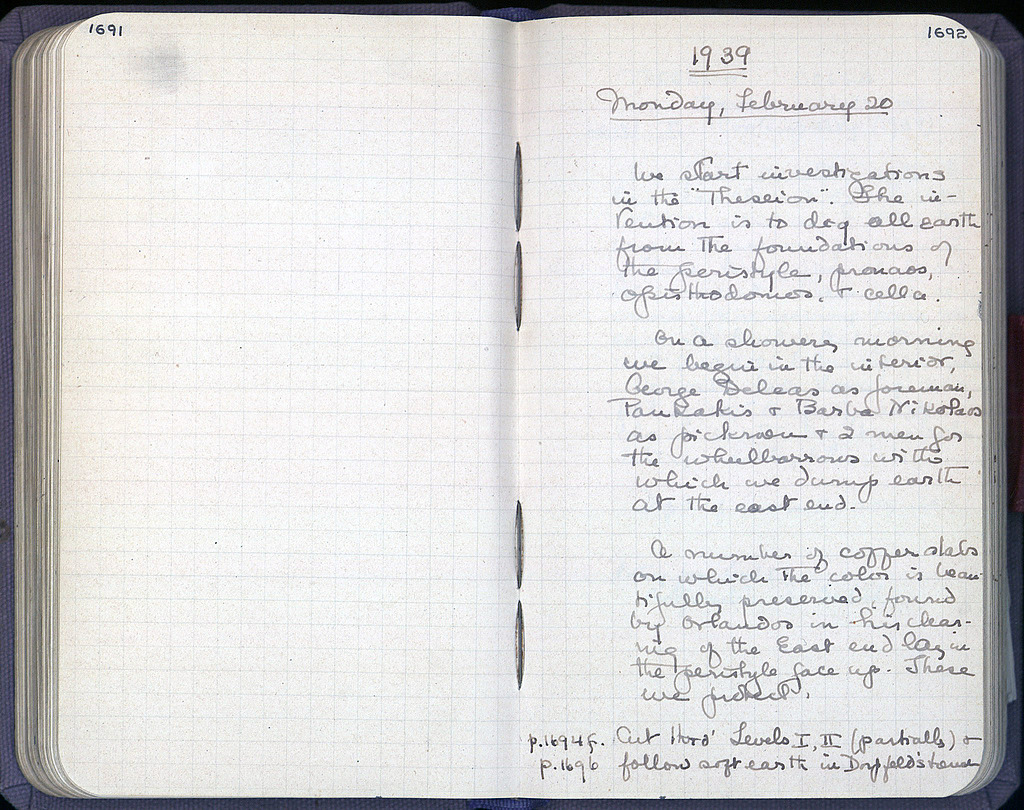 1691
1692
1939
Monday, February 20
We start investigations
in the "Theseion". The in-
tention is to dig all earth
from the foundations of
the peristyle, pronaos,
opisthodomos, + cella.
On a showery morning
we begin in the interior,
George Deleas as foreman,
Pan Kakis + Barba Nikolaos
as pickmen + 2 men for
the wheelbarrows with
which we dump earth
at the east end.
A number of coffer slabs
on which the color is beau-
tifully preserved, found
by Orlandos in his clear-
ing of the East end lay in
the peristyle face up. These
we protect.
p.1694f. Cut thro' Levels I, II (partially) +
p.1696 follow soft earth in Dorpfeld's trench